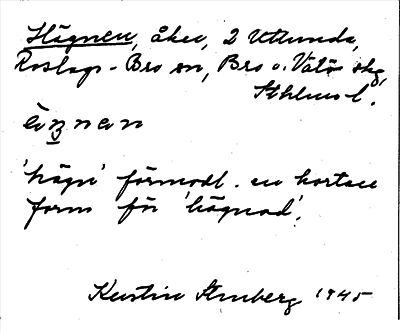 Hägnen, åker, 2 Utlunda,
Roslags-Bro sn, Bro o. Vätö skg,
Sthlms l.
äŋnan
'hägn' förmodl. en kortare
form för 'hägnad'.
Kerstin Stenberg 1945